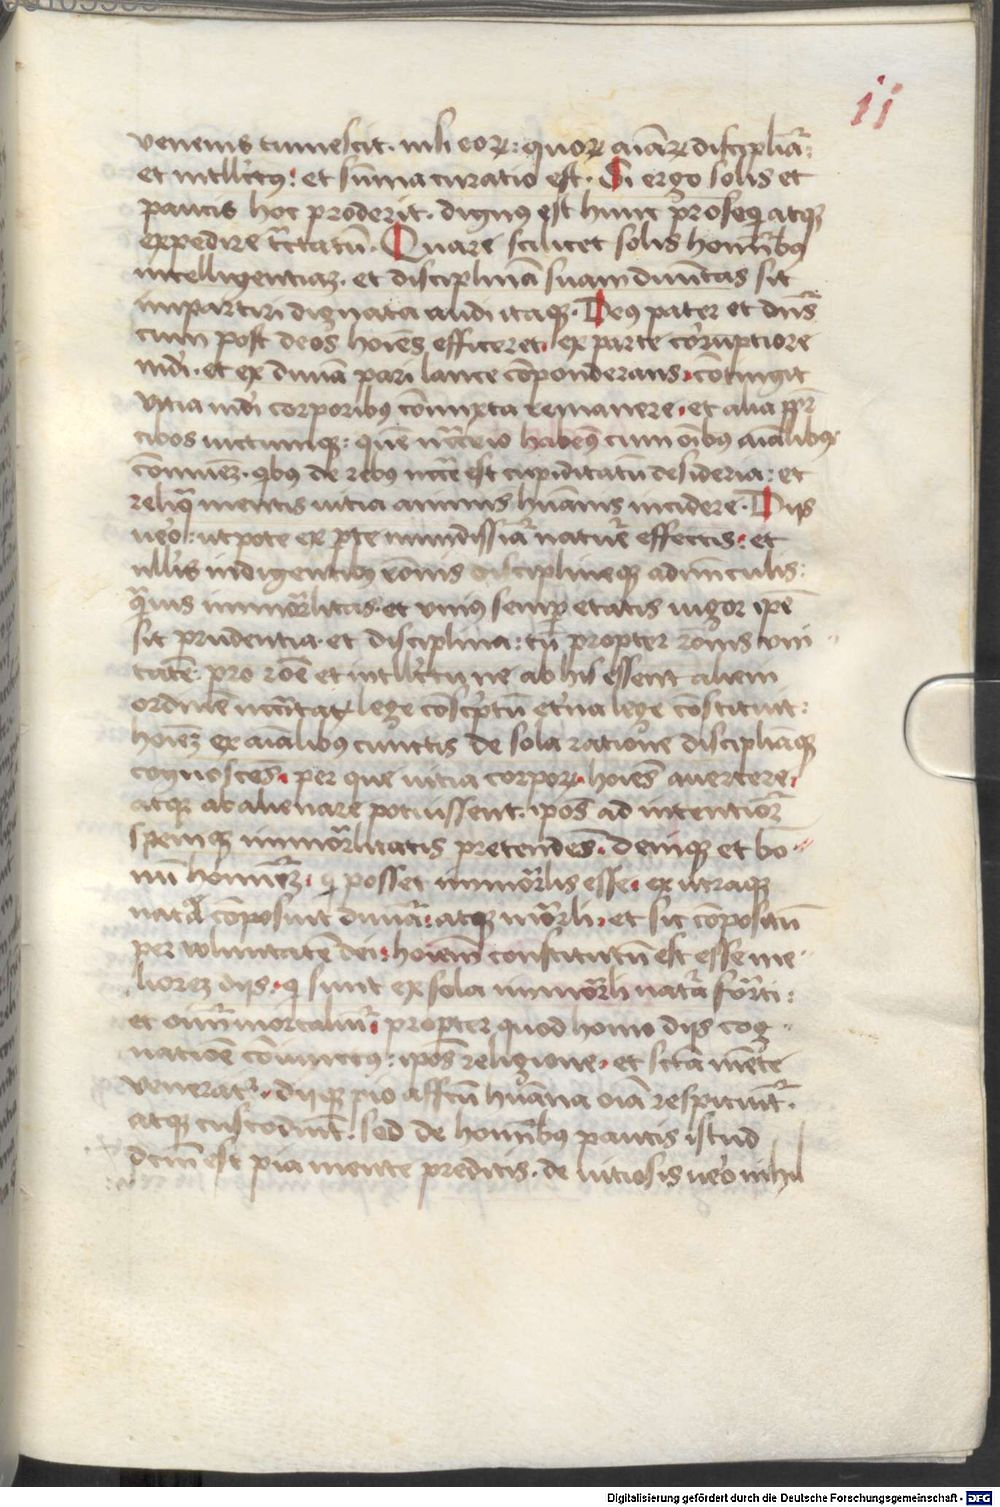 ii
venenis tumescit. nisi eoꝝ: quoꝝ aīaꝝ disciplīa:
et intll'ctus: et sūma curatio est. Si ergo solis et
paucis hoc proderit. dignus est hunc prosequi atqꝫ
expedire tr̄ctatū. Quare scilicet solis homīibus
intelligentiaꝫ. et disciplinā suam diuinitas sit
impartiri dignata audi itaqꝫ. Deus pater et dn̄s
cum post deos hoīes efficeret. ex parte corruptiore
mūdi. et ex diuīa pari lance cōponderans. cōtingit
vitia mūdi corporibus cōmixta remanere. et alia ꝓpter
cibos uictumqꝫ: quē necc̄rio habemus cum oībus aīalibus
cōmuneꝫ. qbus de rebus necc̄e est cupiditatū desideria: et
reliqua mentis uitia animis hūanis incidere. Diis
uero: utpote ex parte mundissīa nature effectis: et
nullis indigentibus rōnis disciplineqꝫ adminculis:
quāuis immortalitas et vnius semper etatis uigor ipē
sit prudentia. et disciplina: tn̄ propter rōnis vni
tatē. pro rōne et intll'ctu ne ab his essent alieni
ordinē necc̄itatis lege cōscriptū eterna lege cōstituit:
hoīeꝫ ex aīalibus cunctis de sola ratione disciplinaqꝫ
cognoscēs. per que uitia corporꝝ. hoīes auertere.
atqꝫ abalienare potuissent. ipos ad intentionē
spemqꝫ immortalitatis pretendēs. Deniqꝫ et bo
nū homīeꝫ. qi posset immortalis esse. ex utraqꝫ
natura cōposuit diuīa: atqꝫ mortali. et sic cōpositū
per voluntatē dei. hoīem constitutū est esse me
lioreꝫ diis. qi sunt ex sola immortali natura formati:
et oīum mortaliū. propter quod homo diis cog
natione coniunctus: ipos religione. et sctā mēte
veneratur. diiqꝫ pio affectu hūana oīa respiciunt.
atqꝫ custodiunt. sed de homībus paucis istud
dcm̄ est pia mente preditis. de uitiosis uero nihil
Digitalisierung gefördert durch die Deutsche Forschungsgemeinschaft - DFG